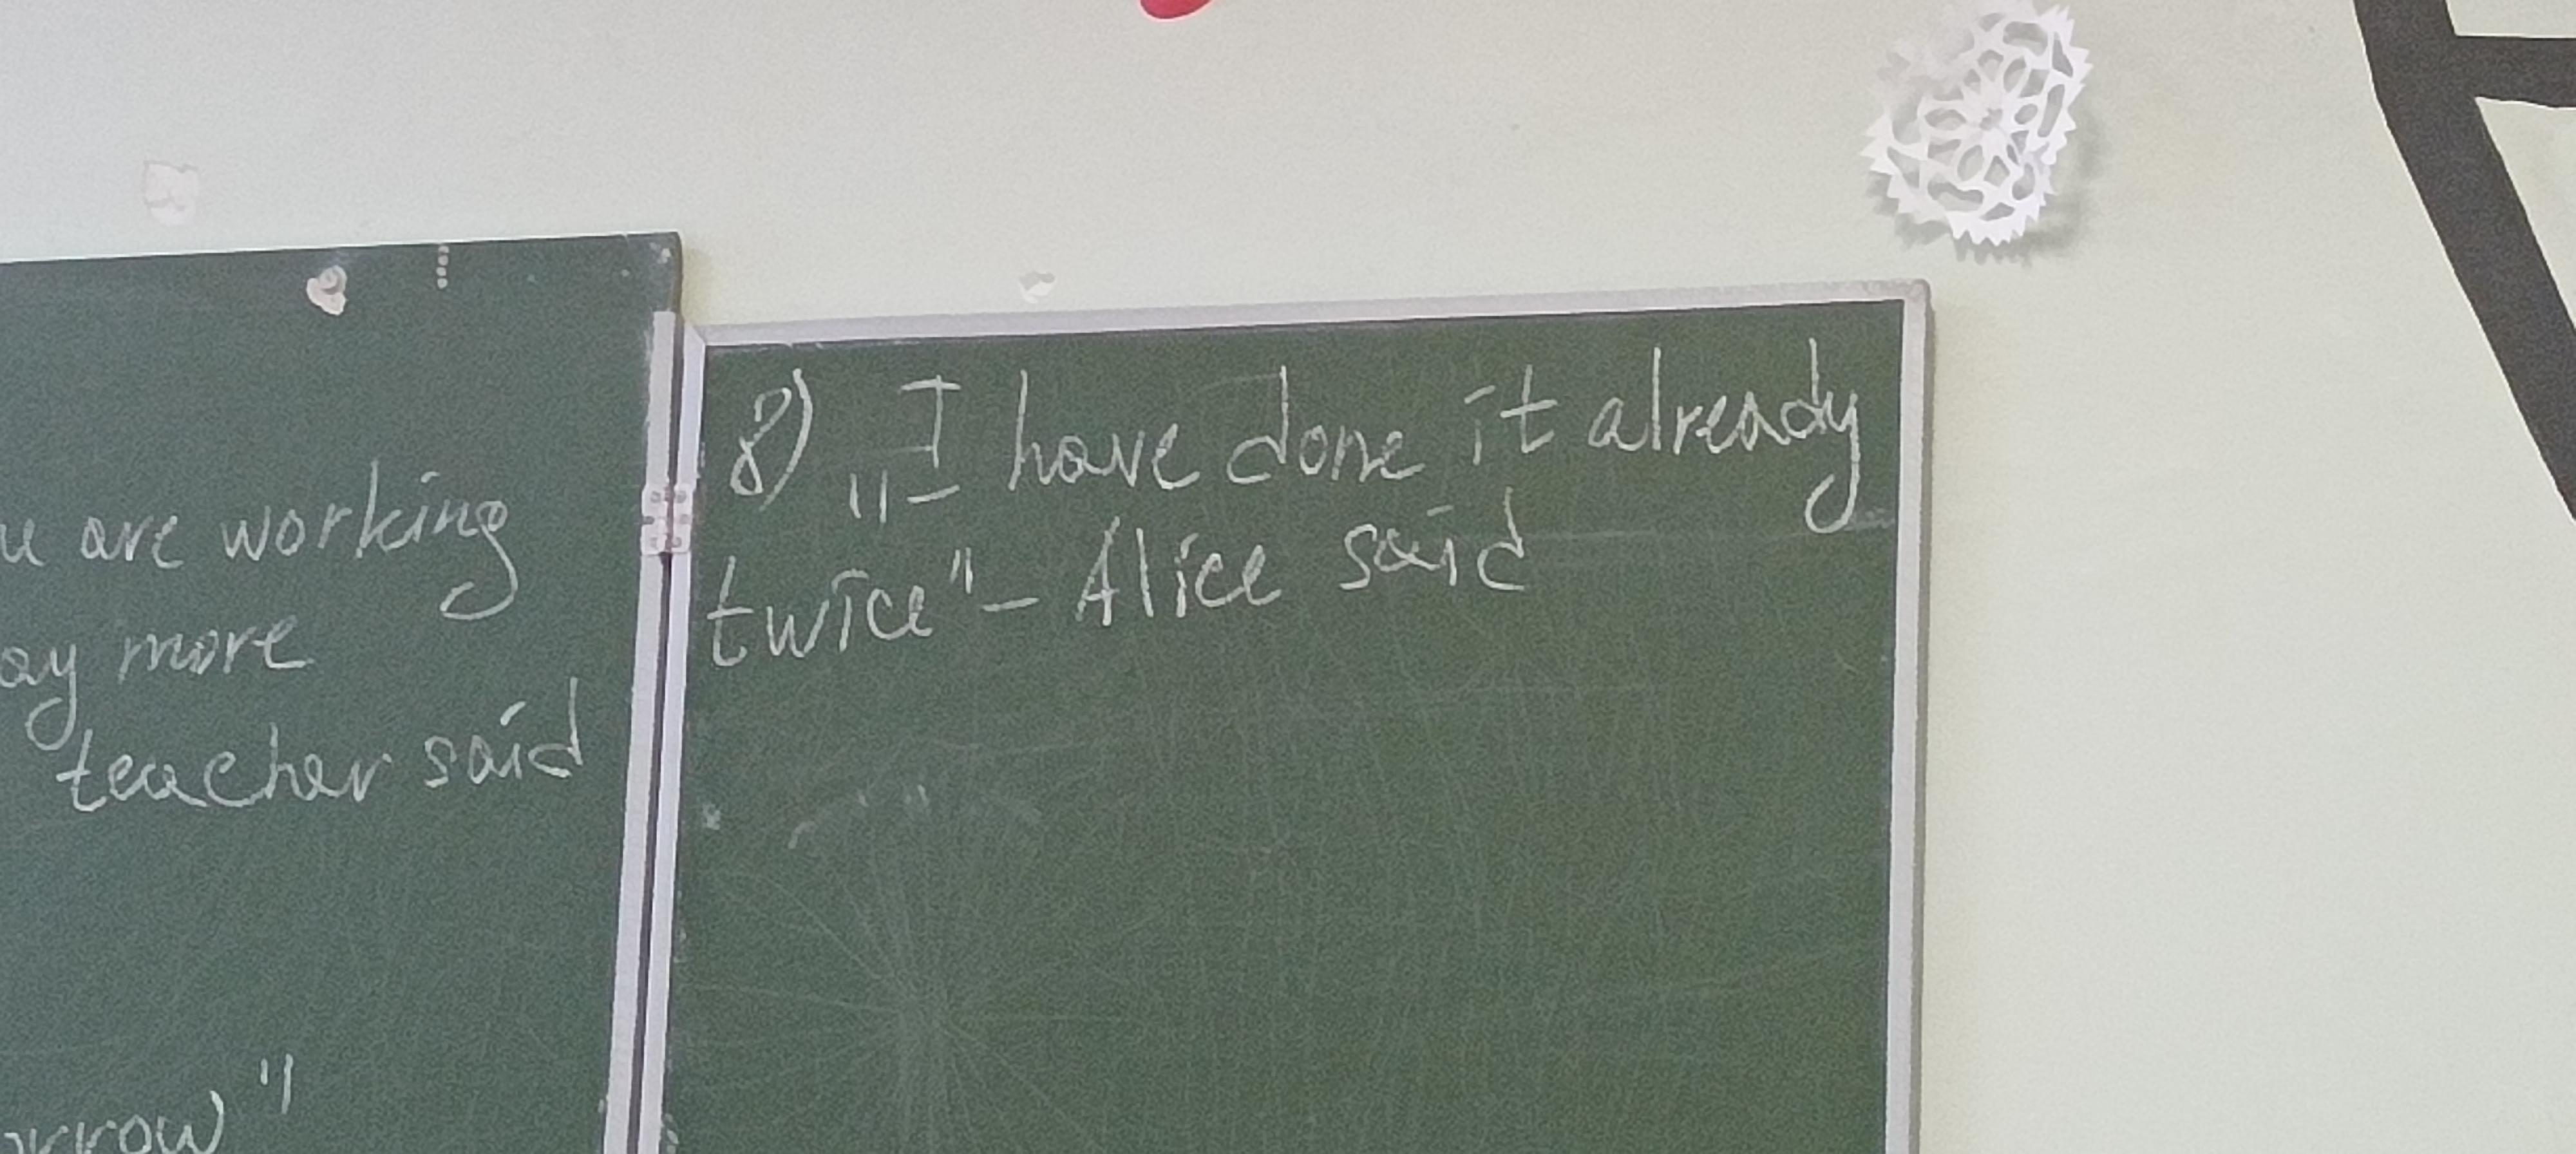 are working
more
teacher said
8) „I have done it already
twice" – Alice said